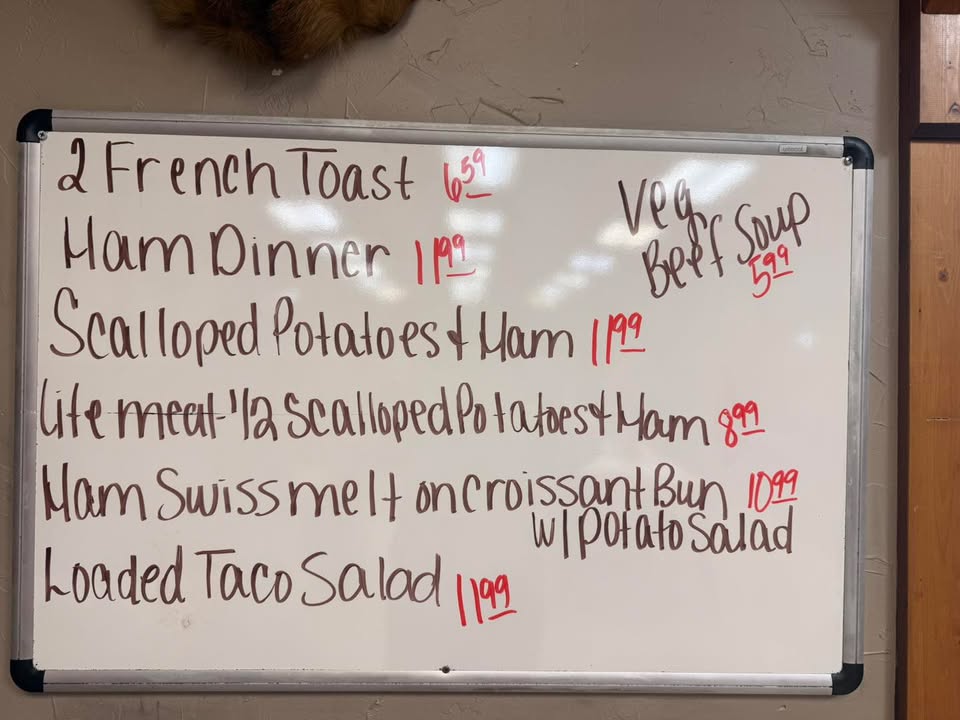 2 French Toast 6 59
Ham Dinner 11 99
Scalloped Potatoes & Ham 11 99
Lite meat - 1/2 Scalloped Potatoes & Ham 8 99
Ham Swiss melt on Croissant Bun 10 99
w/ potato Salad
Loaded Taco Salad 11 99
Veg
Beef Soup
5 99